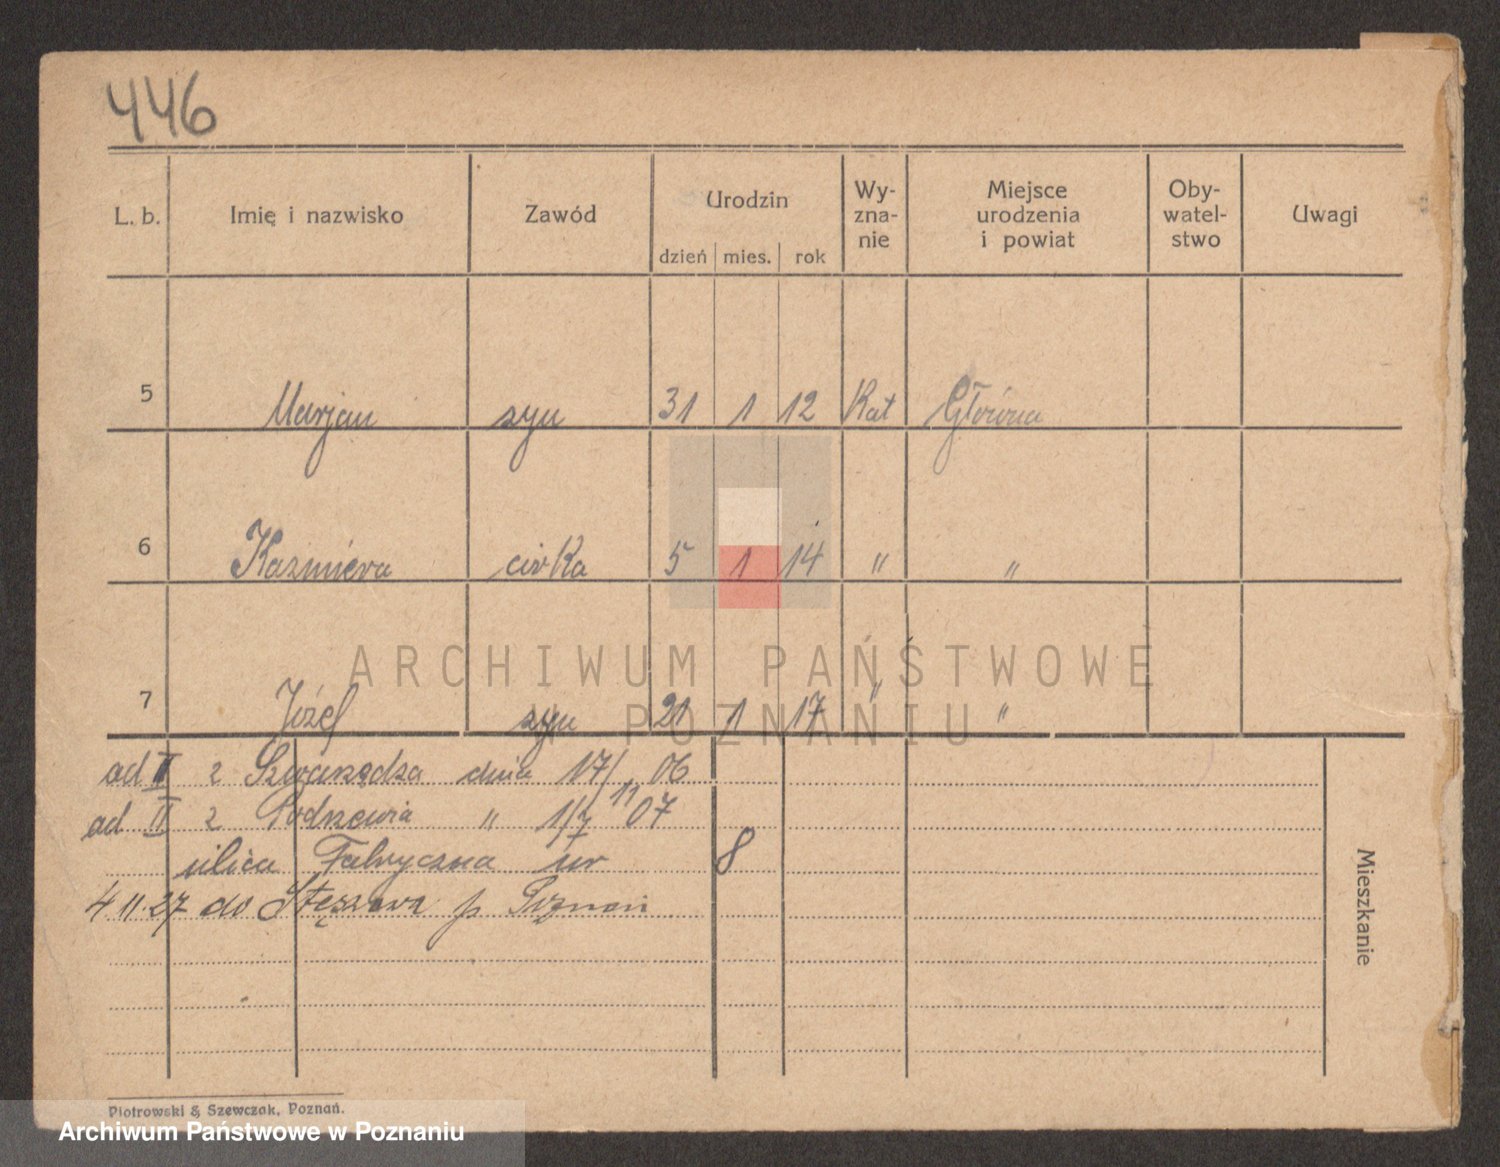 446
L. b. Imię i nazwisko Zawód Urodzin Wy-zna-nie Miejsce urodzenia i powiat Oby-watel-stwo Uwagi
dzień mies. rok
5 Marjan syn 31 1 12 Kat Główna
6 Kazmiera córka 5 1 14 " "
ARCHIWUM PAŃSTWOWE
7 Józef syn 21 1 17 " "
POZNANIU
ad I z Swarzędza dnia 17/11 06
ad II z " 1/7 07
ulica Fabryczna nr 8
4 11.27 do p Poznań
Mieszkanie
Piotrowski & Szewczak, Poznań.
Archiwum Państwowe w Poznaniu